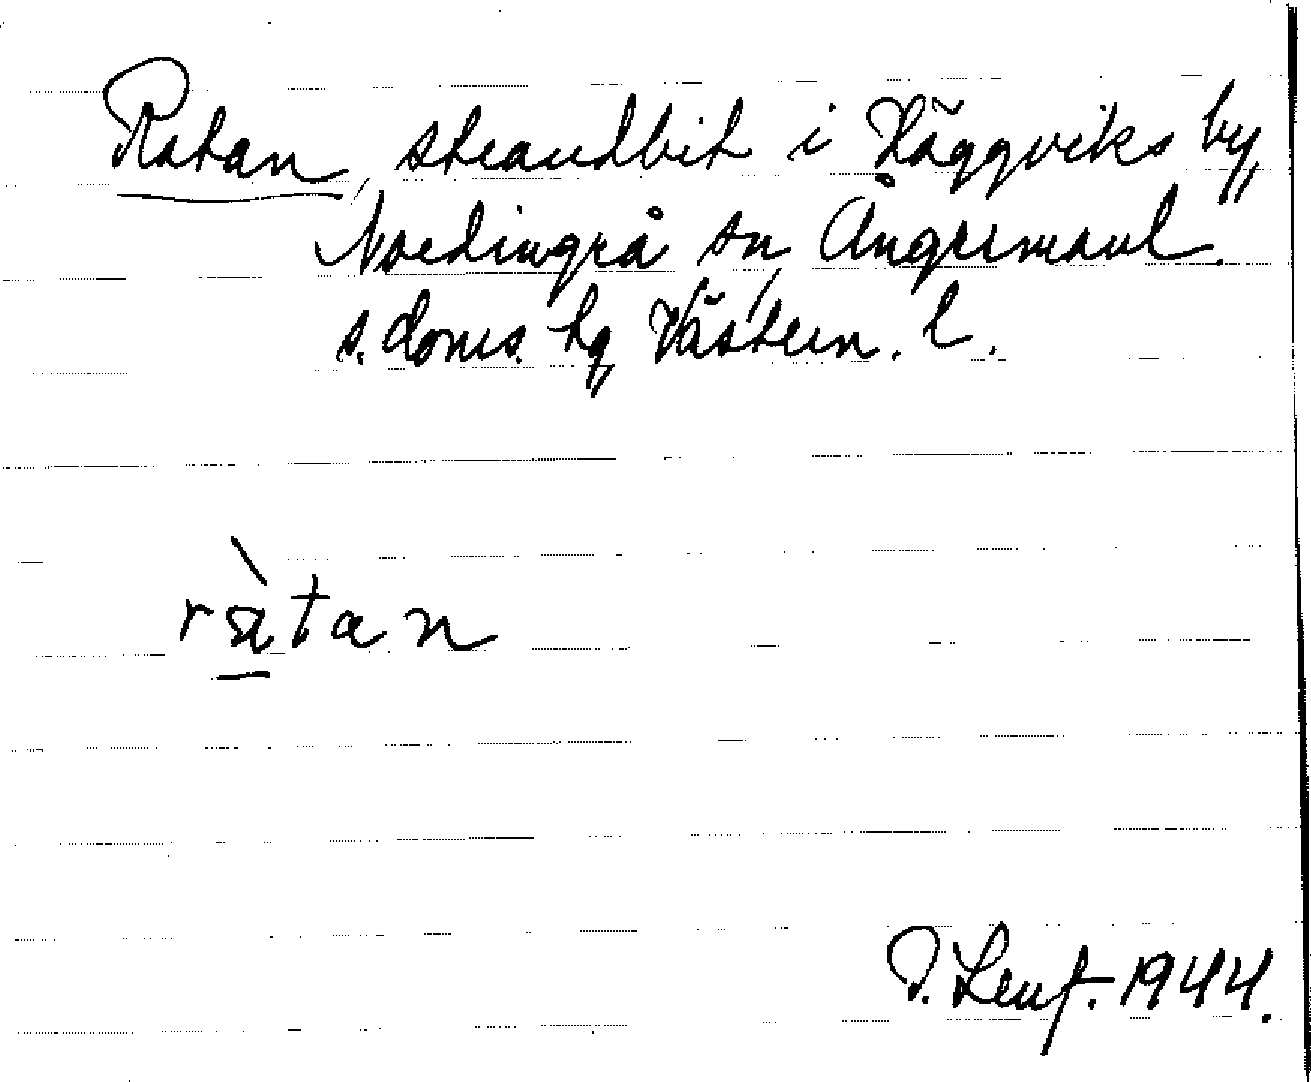 Ratan, strandbit i Häggviks by,
Nordingrå sn, Ångermanl.
s. doms. hg, Västern. l.
ràtan
D. Leuf. 1944.